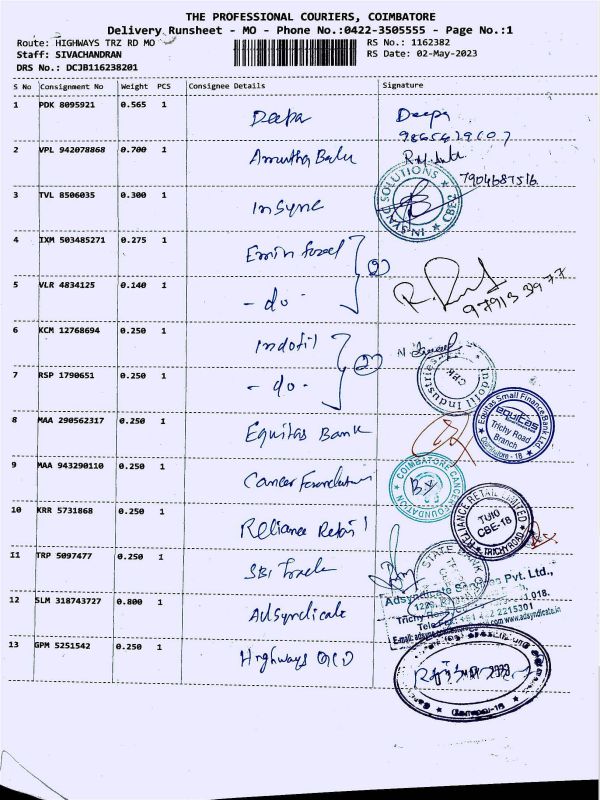 THE PROFESSIONAL COURIERS, COIMBATORE
Delivery Runsheet - MO - Phone No.:0422-3505555 - Page No.:1
Route: HIGHWAYS TRZ RD MO RS No.: 1162382
Staff: SIVACHANDRAN RS Date: 02-May-2023
DRS No.: DCJB116238201
S No Consignment No Weight PCS Consignee Details Signature
1 PDK 8095921 0.565 1 Deepa Deepa
2 VPL 942078868 0.700 1 Amutha Balu
7904687516
3 TVL 8506035 0.300 1 Insync
IN-SYNC SOLUTIONS CBE
4 IXM 503485271 0.275 1 2
5 VLR 4834125 0.140 1 - do - R.
97913 3977
6 KCM 12768694 0.250 1 Indofil 2 N
7 RSP 1790651 0.250 1 - do -
Indofil Industries CBE
8 MAA 290562317 0.250 1 Equitas Bank
Equitas Small Finance Bank Ltd
equitas
Trichy Road
Branch
Coimbatore - 18
9 MAA 943290110 0.250 1 Cancer Foundation
COIMBATORE CANCER FOUNDATION
10 KRR 5731868 0.250 1 Reliance Retail
RELIANCE RETAIL LIMITED
TUIO
CBE-18
TRICHY ROAD
11 TRP 5097477 0.250 1 SBI Trade
STATE BANK
12 SLM 318743727 0.800 1 Adsyndicate
Adsyndicate Services Pvt. Ltd.,
Trichy 018.
2215301
www.adsyndicate.in
13 GPM 5251542 0.250 1 Highways